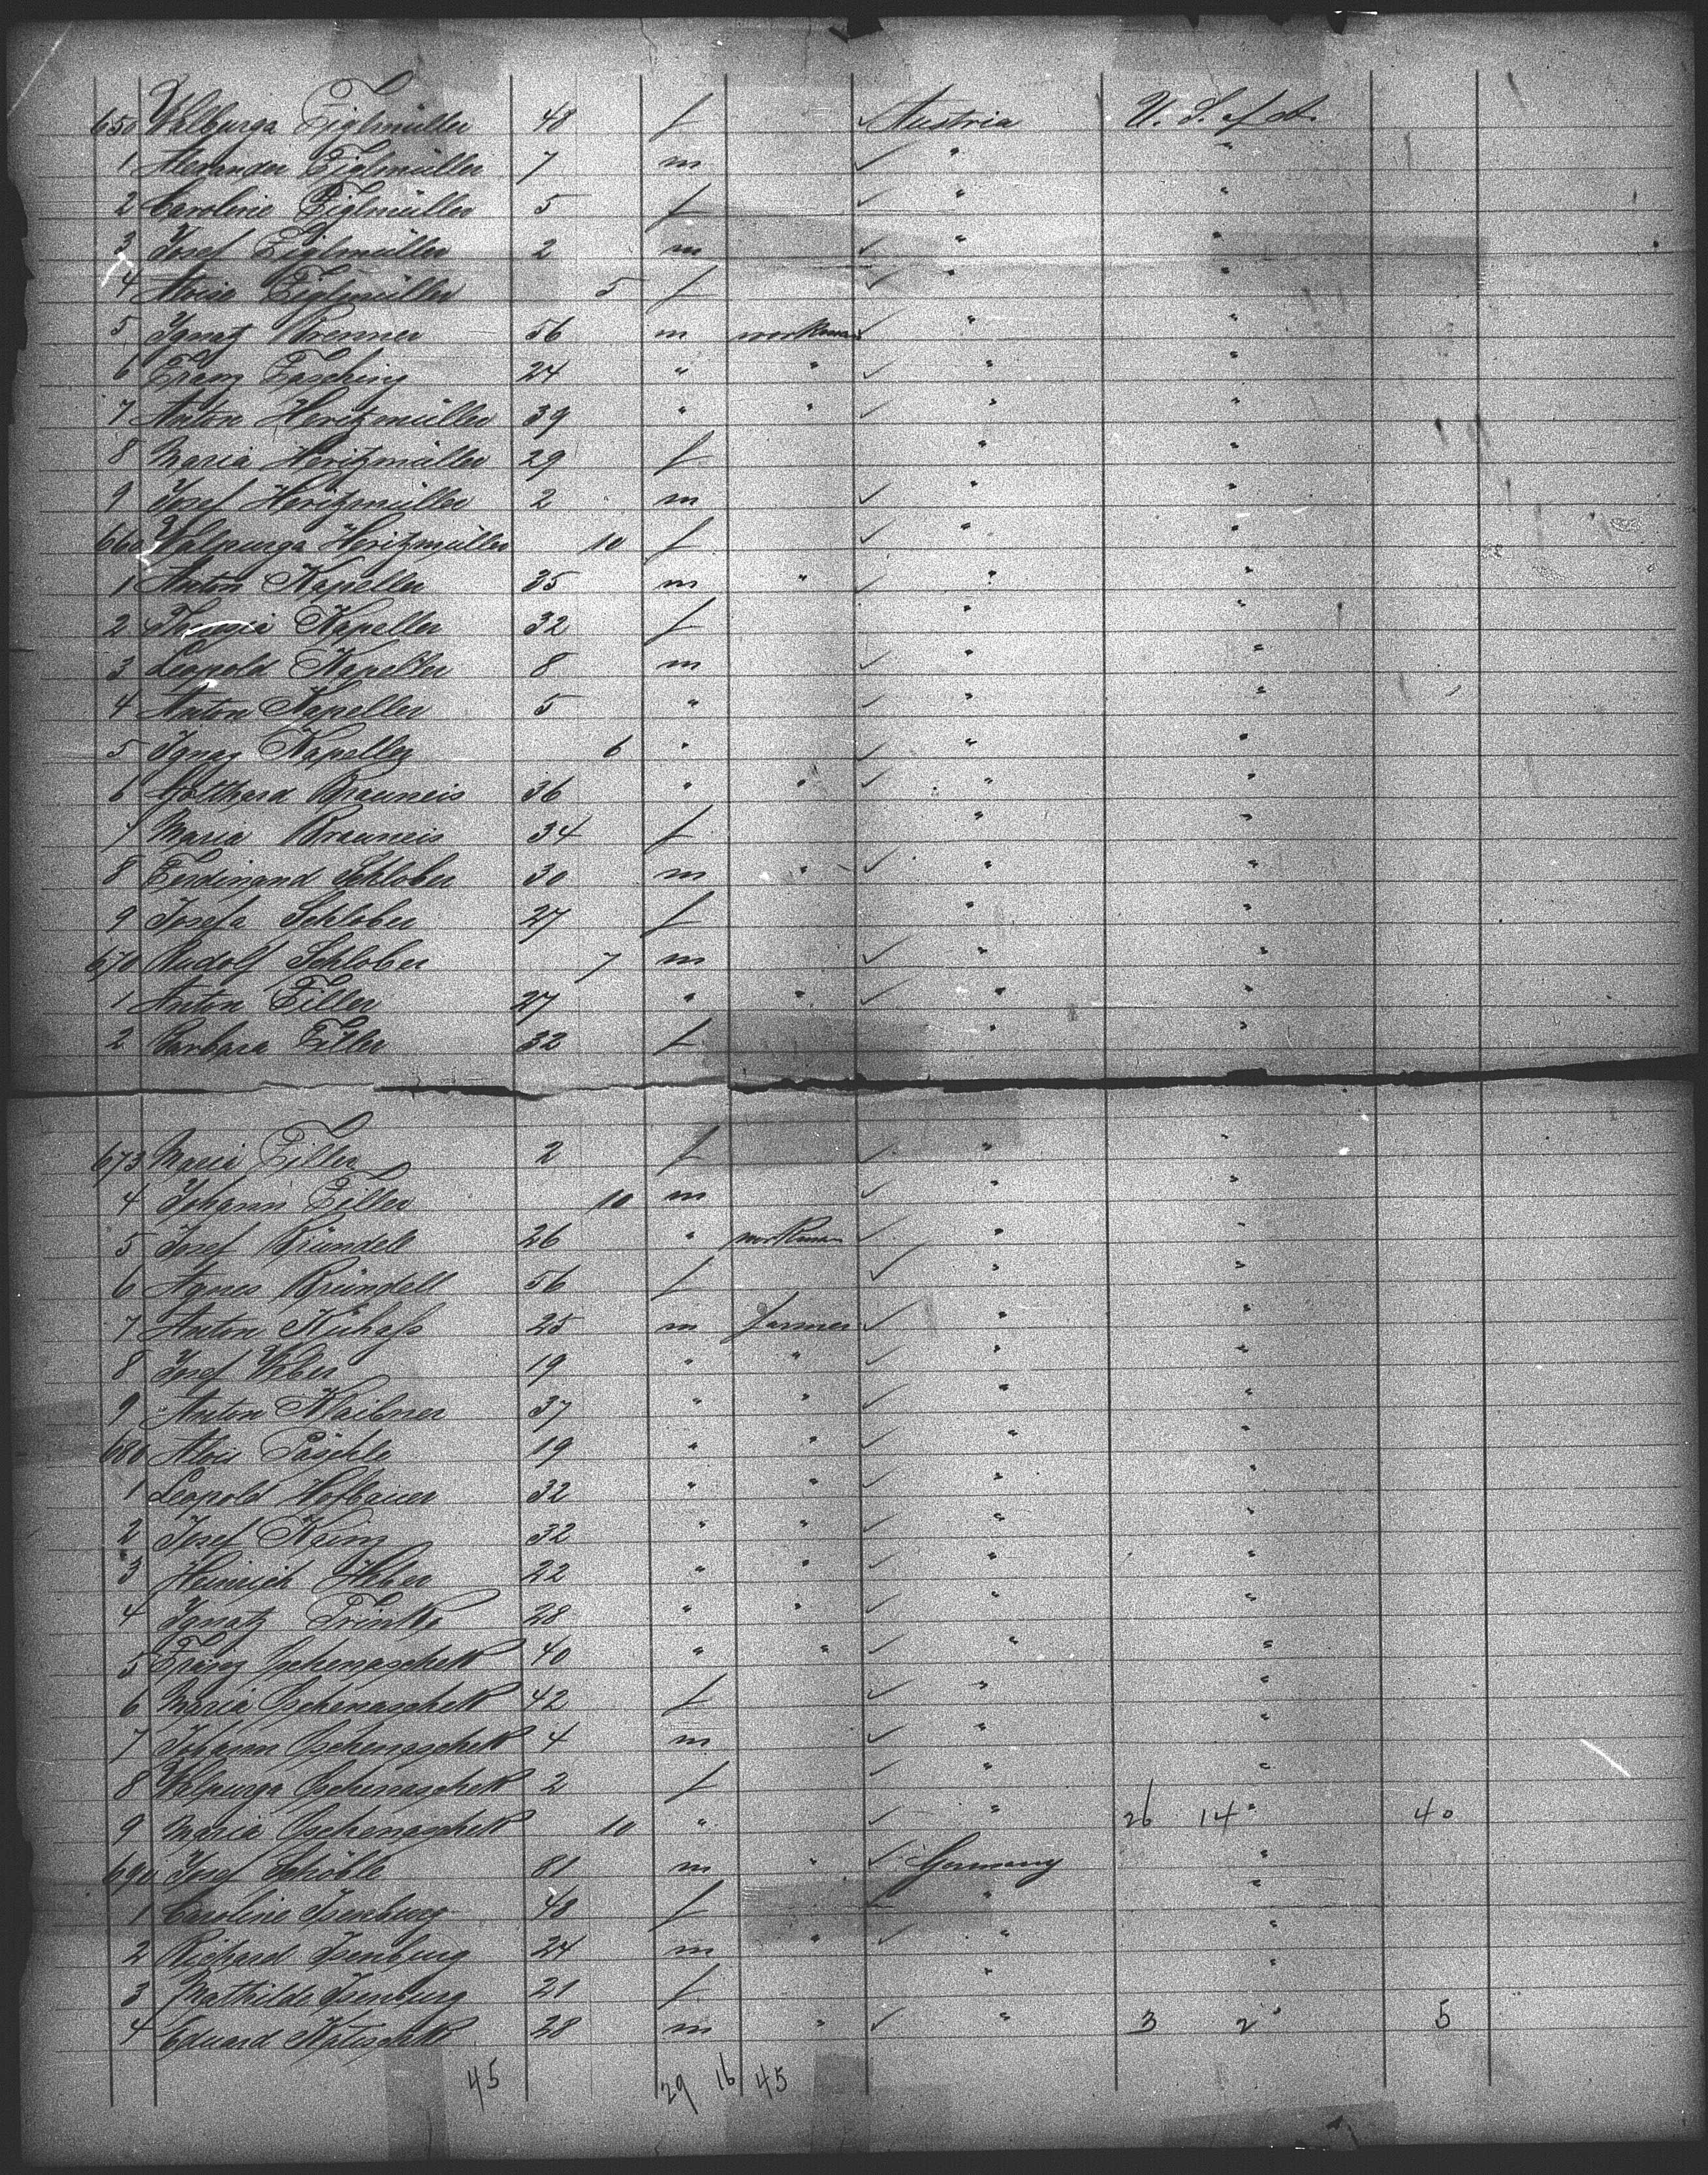 650 Walburga Figlmüller 48 f Austria U. S. of A.
1 Alexander Figlmüller 7 m " "
2 Caroline Figlmüller 5 f " "
3 Josef Figlmüller 2 m " "
4 Aloisa Figlmüller 5 f " "
5 Ignatz Krenner 56 m workman " "
6 Franz Fasching 24 " " " "
7 Anton Heritzmüller 39 " " " "
8 Maria Heritzmüller 29 f " "
9 Josef Heritzmüller 2 m " "
660 Walpurga Heritzmüller 10 f " "
1 Anton Kapeller 35 m " " "
2 Theresia Kapeller 32 f " "
3 Leopold Kapeller 8 m " "
4 Anton Kapeller 5 " " "
5 Ignaz Kapeller 6 " " "
6 Gotthard Brauneis 36 " " " "
7 Maria Brauneis 34 f " "
8 Ferdinand Schlober 30 m " " "
9 Josefa Schlober 27 f " "
670 Rudolf Schlober 7 m " "
1 Anton Filler 27 " " " "
2 Barbara Filler 32 f " "
673 Maria Filler 2 f " "
4 Johann Filler 10 m " "
5 Josef Bründell 26 " workman " "
6 Agnes Bründell 56 f " "
7 Anton Kuhass 25 m farmer " "
8 Josef Weber 19 " " " "
9 Anton Klaibner 37 " " " "
680 Alois Paschke 19 " " " "
1 Leopold Hofbauer 32 " " " "
2 Josef Kainz 32 " " " "
3 Heinrich Huber 22 " " " "
4 Ignatz Trinko 28 " " " "
5 Franz Tschenaschek 40 " " " "
6 Maria Tschenaschek 42 f " "
7 Johann Tschenaschek 4 m " "
8 Walpurga Tschenaschek 2 f " "
9 Maria Tschenaschek 10 " " 26 14 " 40
690 Josef Schöble 81 m " Germany "
1 Caroline Isenburg 48 f " "
2 Richard Isenburg 24 m " " "
3 Mathilde Isenburg 21 f " "
4 Eduard Katschek 28 m " " 3 2 " 5
45 29 16 45